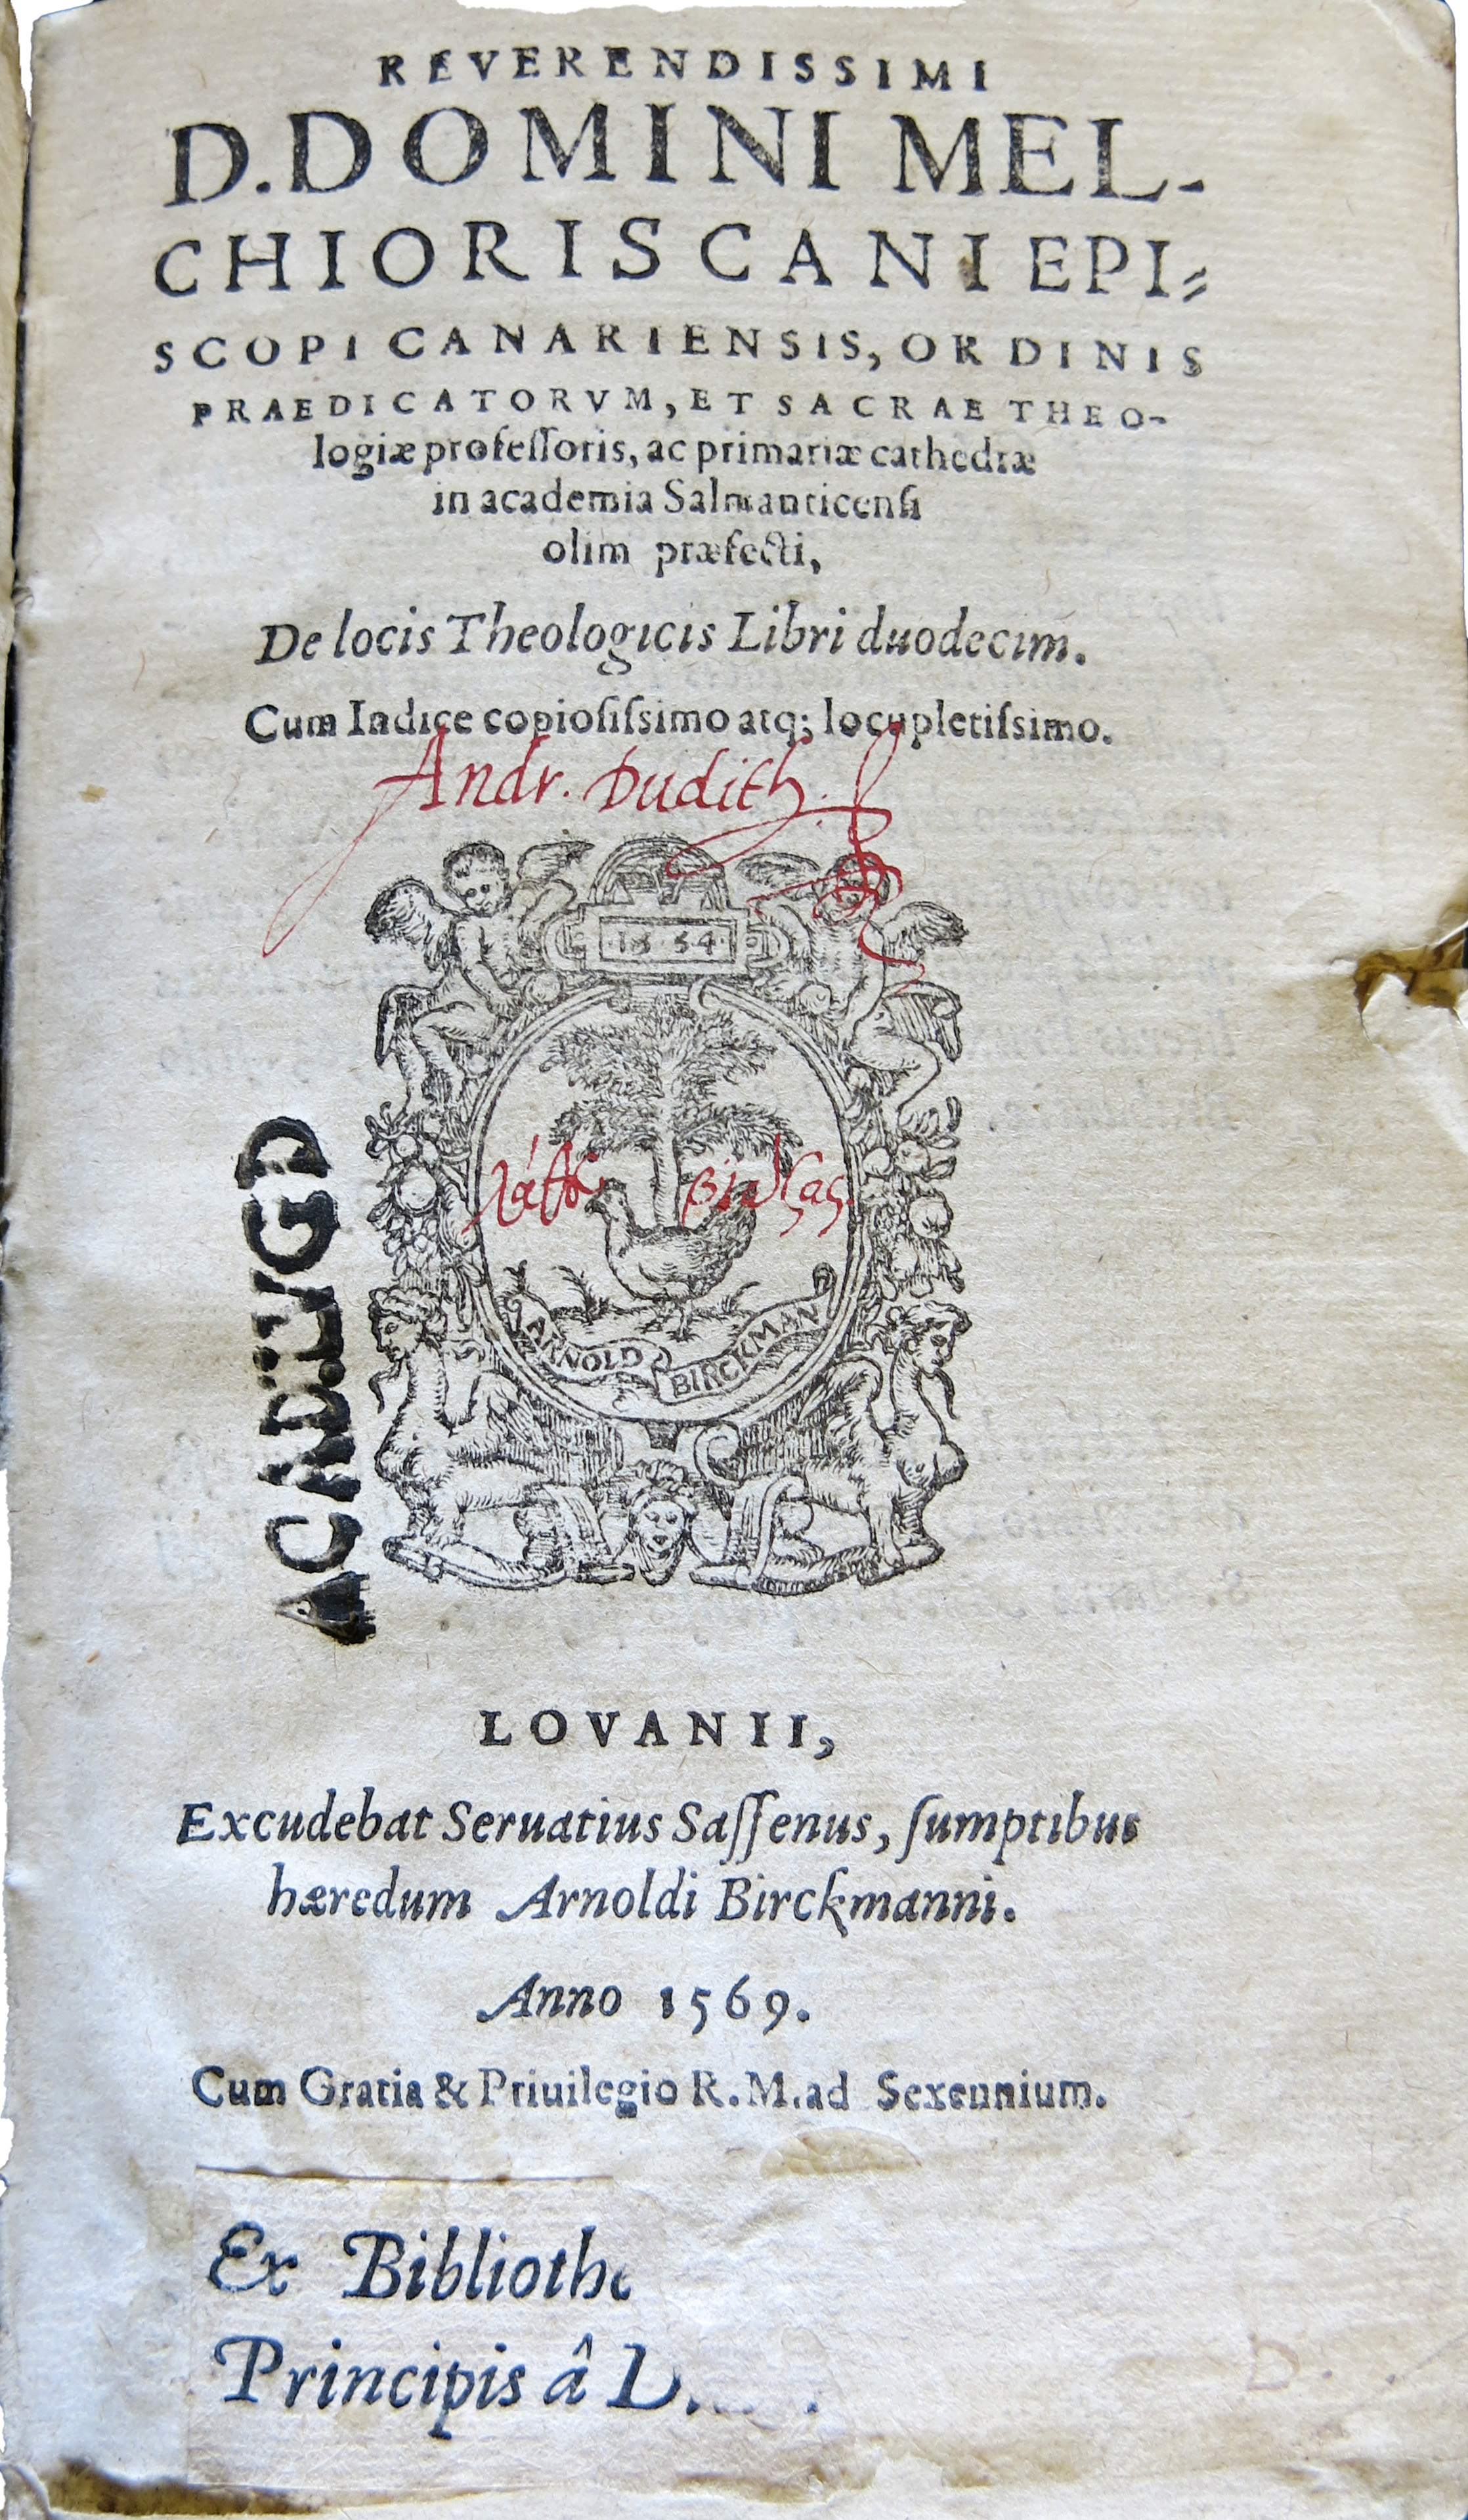 REVERENDISSIMI
D. DOMINI MEL-
CHIORIS CANI EPI=
SCOPI CANARIENSIS, ORDINIS
PRAEDICATORVM, ET SACRAE THEO-
logiæ professoris, ac primariæ cathedræ
in academia Salmanticensi
olim præfecti,
De locis Theologicis Libri duodecim.
Cum Indice copiosissimo atq; locupletissimo.
Andr. Dudith.
1554
λάθε βιώσας
ARNOLD BIRCKMAN
ACAD. LUGD
LOVANII,
Excudebat Seruatius Sassenus, sumptibus
hæredum Arnoldi Birckmanni.
Anno 1569.
Cum Gratia & Priuilegio R. M. ad Sexennium.
Ex Bibliothe
Principis â